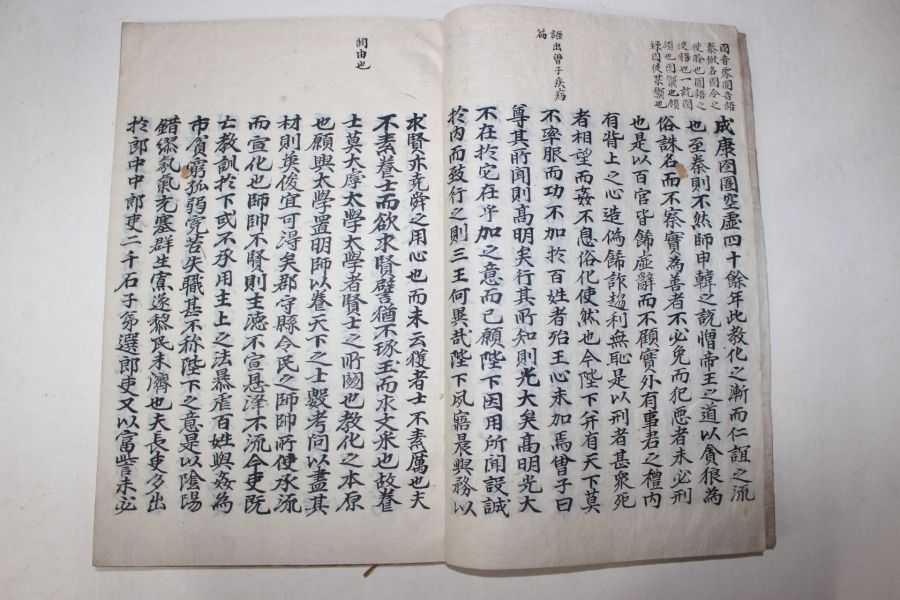 囹音零圄音語
秦獄名囹令之
使聆也圄語之
使悟也一說囹
領也圄禦也領
錄囚徒禁禦也
語出曾子疾病
篇
成康囹圄空虛四十餘年此教化之漸而仁誼之流
也至秦則不然師申韓之說憎帝王之道以貪狼為
俗誅名而不察實為善者不必免而犯惡者未必刑
也是以百官皆餙虛辭而不顧實外有事君之禮內
有背上之心造偽餙詐趍利無恥是以刑者甚衆死
者相望而姦不息俗化使然也今陛下并有天下莫
不率服而功不加於百姓者殆王心未加焉曾子曰
尊其所聞則高明矣行其所知則光大矣高明光大
不在於它在乎加之意而已願陛下因用所聞設誠
於內而致行之則三王何異哉陛下夙寤晨興務以
關由也
求賢亦堯舜之用心也而未云獲者士不素厲也夫
不素養士而欲求賢譬猶不琢玉而求文采也故養
士莫大摩太學太學者賢士之所關也教化之本原
也願興太學置明師以養天下之士數考問以盡其
材則英俊宜可得矣郡守縣令民之師帥所使承流
而宣化也師帥不賢則主德不宣恩澤不流今吏既
亡教訓於下或不承用主上之法暴虐百姓與姦為
市貧窮孤弱寃苦失職甚不称陛下之意是以陰陽
錯繆氛氣充塞群生寡遂黎民未濟也夫長吏多出
於郎中中郎吏二千石子弟選郎吏又以富訾未必